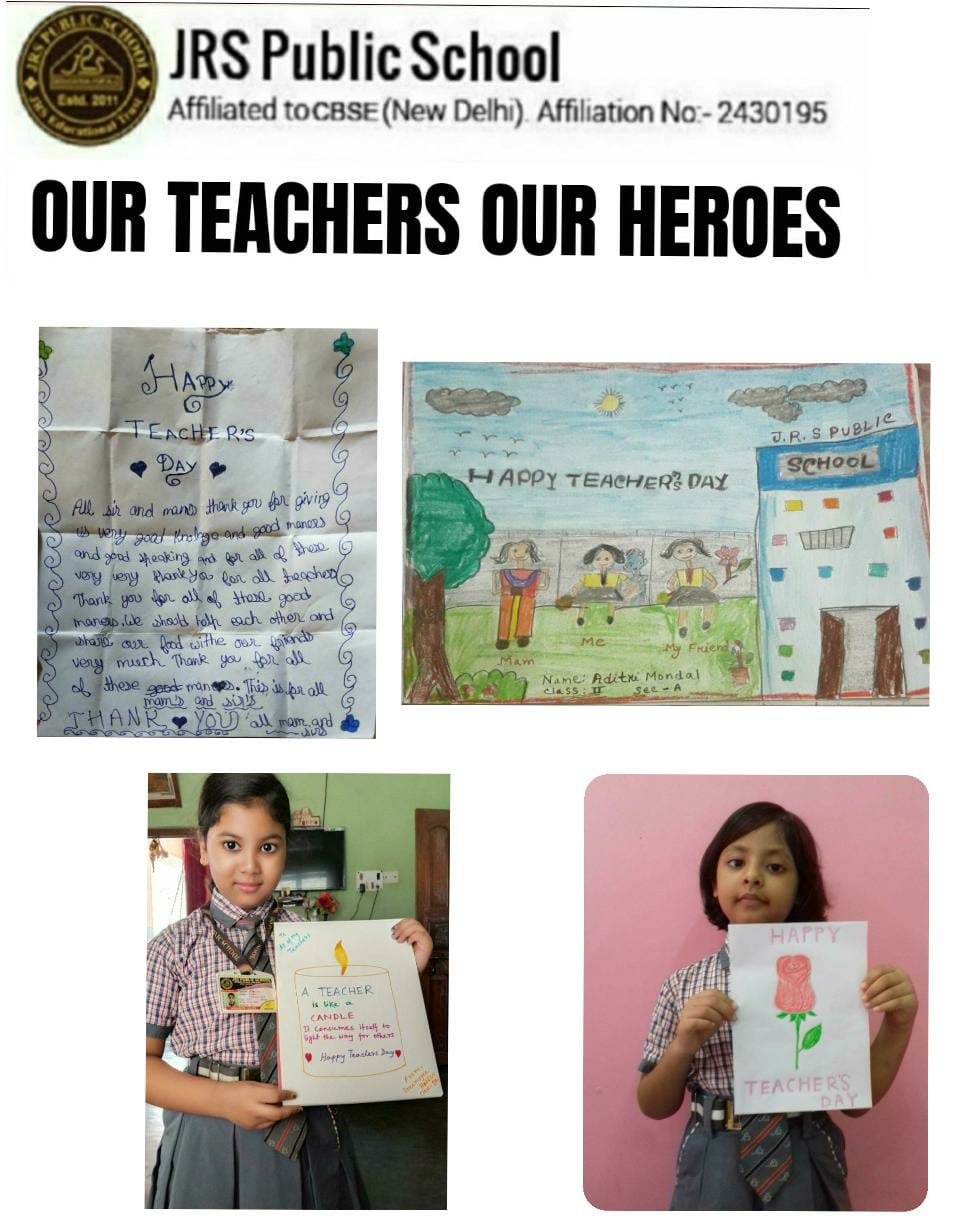 JRS PUBLIC SCHOOL
JRS
Estd. 2011
JRS Educational Trust
JRS Public School
Affiliated to CBSE (New Delhi). Affiliation No:- 2430195
OUR TEACHERS OUR HEROES
HAPPY
TEACHER'S
DAY
All sir and mams thank you for giving
us very good knolage and good maners
and good speaking and for all of these
very very thank you for all teachers
Thank you for all of these good
maners. We should help each other and
share our food withe our friends
very much Thank you for all
of these good maners. This is for all
mam's and sir's
THANK YOU all mam and
sirs
J.R.S PUBLIC
SCHOOL
HAPPY TEACHER'S DAY
Mam
Me
My Friend
Name: Aditri Mondal
Class: II Sec - A
To
All of my
Teachers
A TEACHER
is like a
CANDLE
It consumes itself to
light the way for others
Happy Teachers Day
From:-
HAPPY
TEACHER'S
DAY